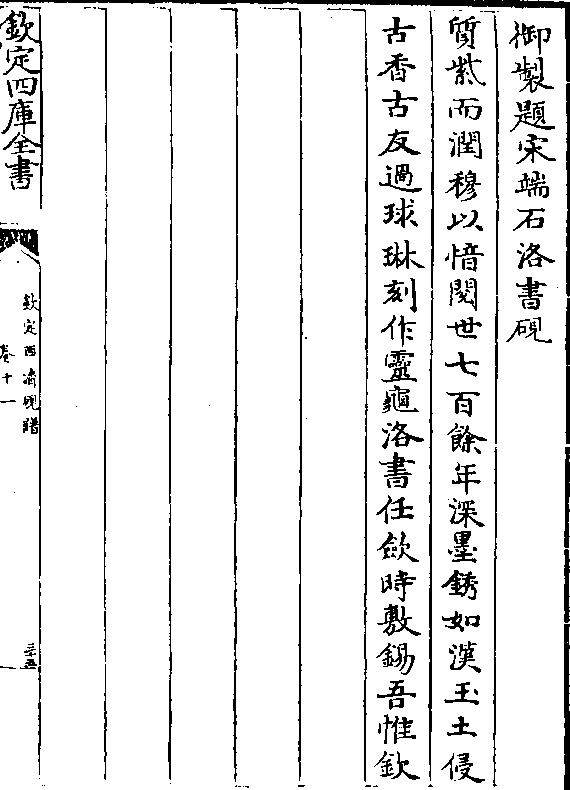 御製題宋端石洛書硯
質紫而潤穆以愔閱世七百餘年深墨銹如漢玉土侵
古香古友過球琳刻作靈龜洛書任歛時敷錫吾惟欽
欽定四庫全書
欽定西清硯譜
卷十一
三五